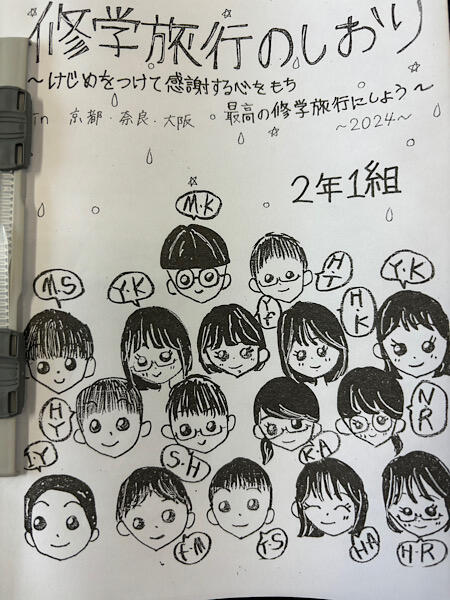 修学旅行のしおり
～けじめをつけて感謝する心をもち
最高の修学旅行にしよう～
in 京都・奈良・大阪。
～2024～
2年1組
M.K
H T
M.S
Y.K
Y.
H.K
Y.K
H Y
N R
.Y
S.H
K.A
F.M
Y.S
H.A
H.R